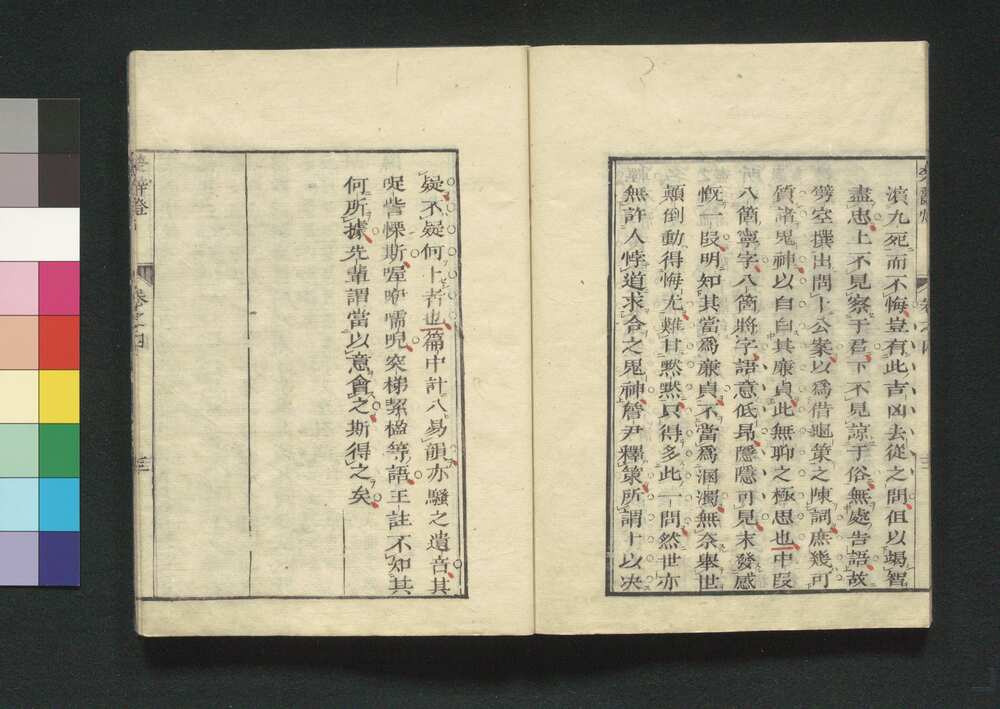 濱九死而不悔豈有此吉凶去從之問但以竭智
盡忠上不見察于君下不見諒于俗無處告語故
劈空撰出問卜公案以爲借龜策之陳詞庶幾可
質諸鬼神以自白其廉貞此無聊之極思也中段
八箇寧字八箇將字語意低昂隱隱可見末發感
慨一段明知其當爲廉貞不當爲溷濁無奈舉世
顛倒動得悔尤雖甘默默只得多此一問然世亦
無許人悖道求合之鬼神詹尹釋策所謂卜以决
疑不疑何卜者也篇中計八易韻亦騷之遺音其
哫訾慄斯喔咿嚅唲突梯絜楹等語王註不知其
何所據先輩謂當以意會之斯得之矣
楚辭燈
卷之四
三